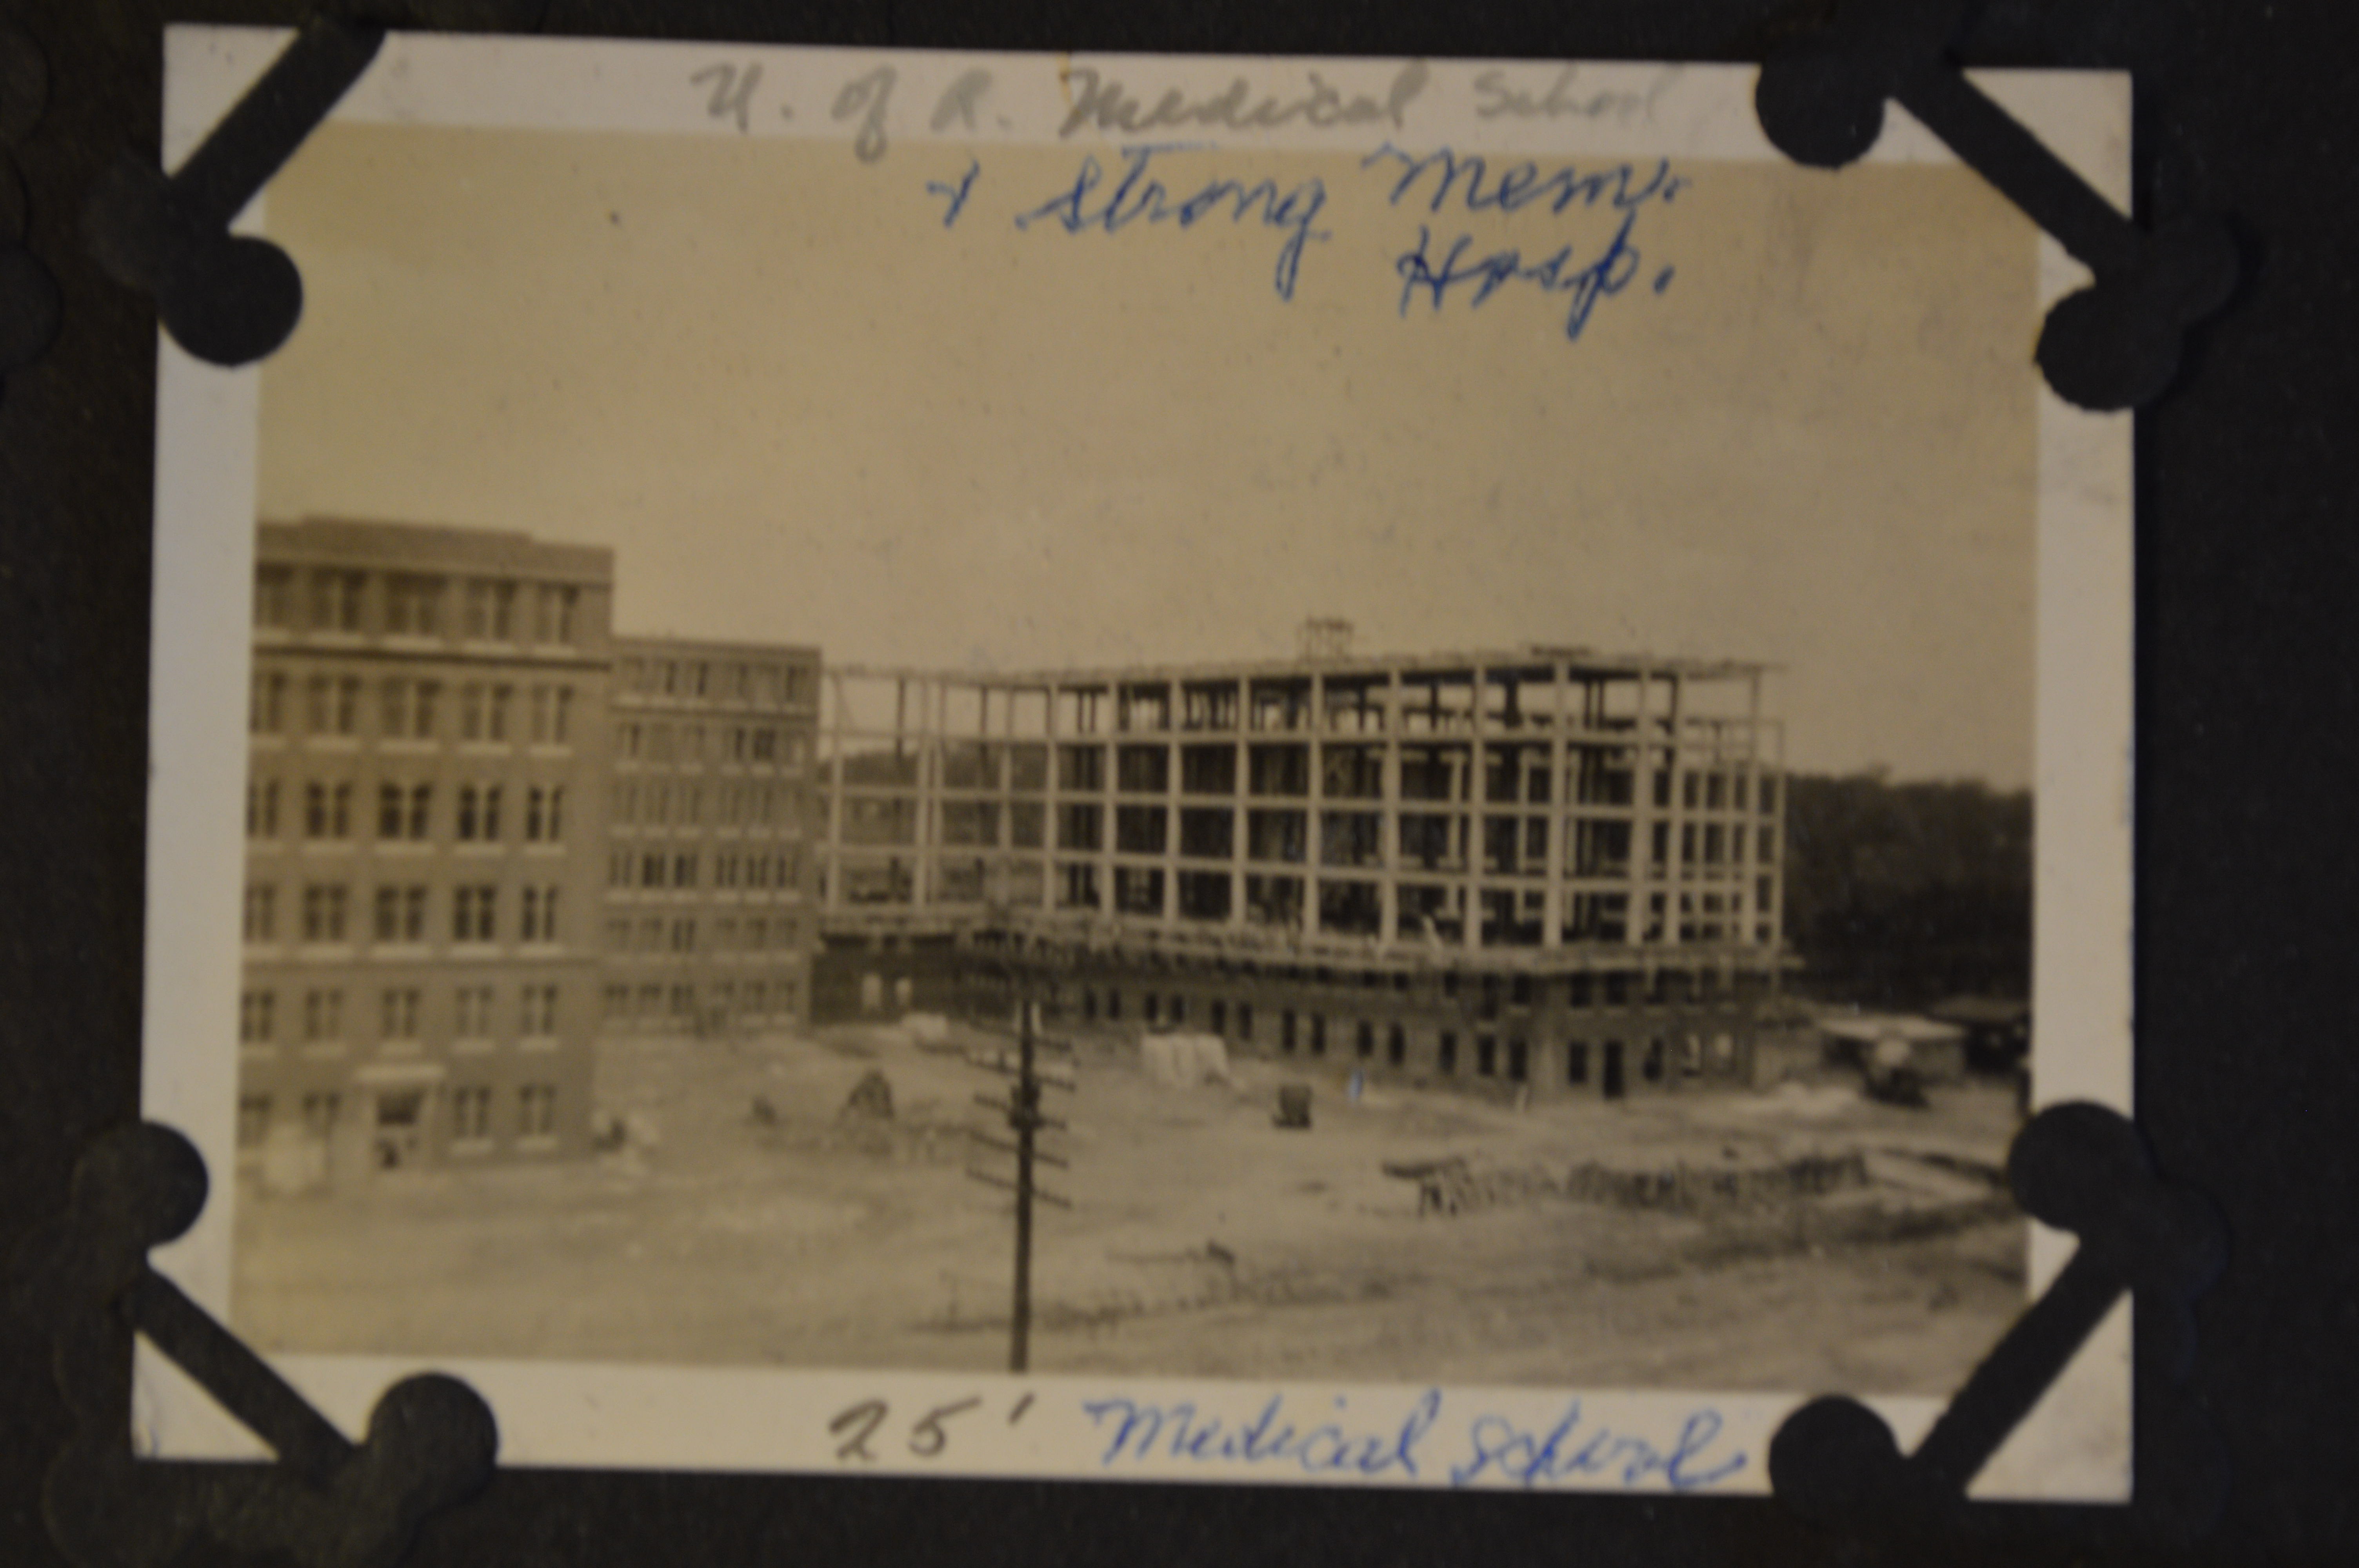 U. of R. Medical School
+ Strong Mem.
Hosp.
25' Medical School